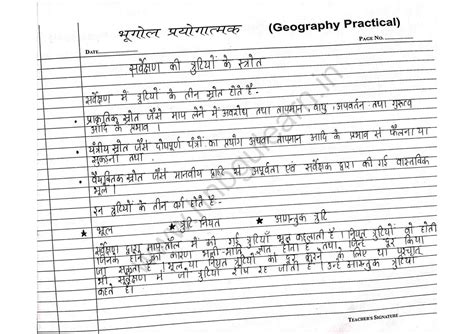 भूगोल प्रयोगात्मक (Geography Practical)
DATE
PAGE NO.
सर्वेक्षण की त्रुटियों के स्त्रोत
सर्वेक्षण में त्रुटियों के तीन स्रोत होते है -
प्राकृतिक स्रोत जैसे माप लेने में अवरोध तथा तापमान, वायु, अपवर्तन तथा गुरुत्व
आदि के प्रभाव ।
यंत्रीय स्रोत जैसे दोषपूर्ण यंत्रों का प्रयोग अथवा तापमान आदि के प्रभाव से फैलना या
सुकाना तथा .
वैयक्तिक स्रोत जैसे मानवीय से अपूर्णता एवं सर्वेक्षक द्वारा की गई वास्तविक
भूल ।
इन त्रुटियों के तीन वर्ग होते है -
★ भूल ★ त्रुटि नियत ★ त्रुटि
सर्वेक्षण द्वारा माप तौल में की गई त्रुटियाँ भूल कहलाती है । नियत त्रुटियाँ वो होती
जिनके होने का कारण भली-भाँति ज्ञात होता है तथा जिन्हें दूर किया
जा सकता है । भूल या नियत त्रुटियों को दूर करने के लिए या पश्चात्
भी सर्वेक्षण में जो त्रुटियाँ शेष रह जाती है । उन्हें त्रुटियाँ
कहते है ।
TEACHER'S SIGNATURE
www.mbgulearn.in